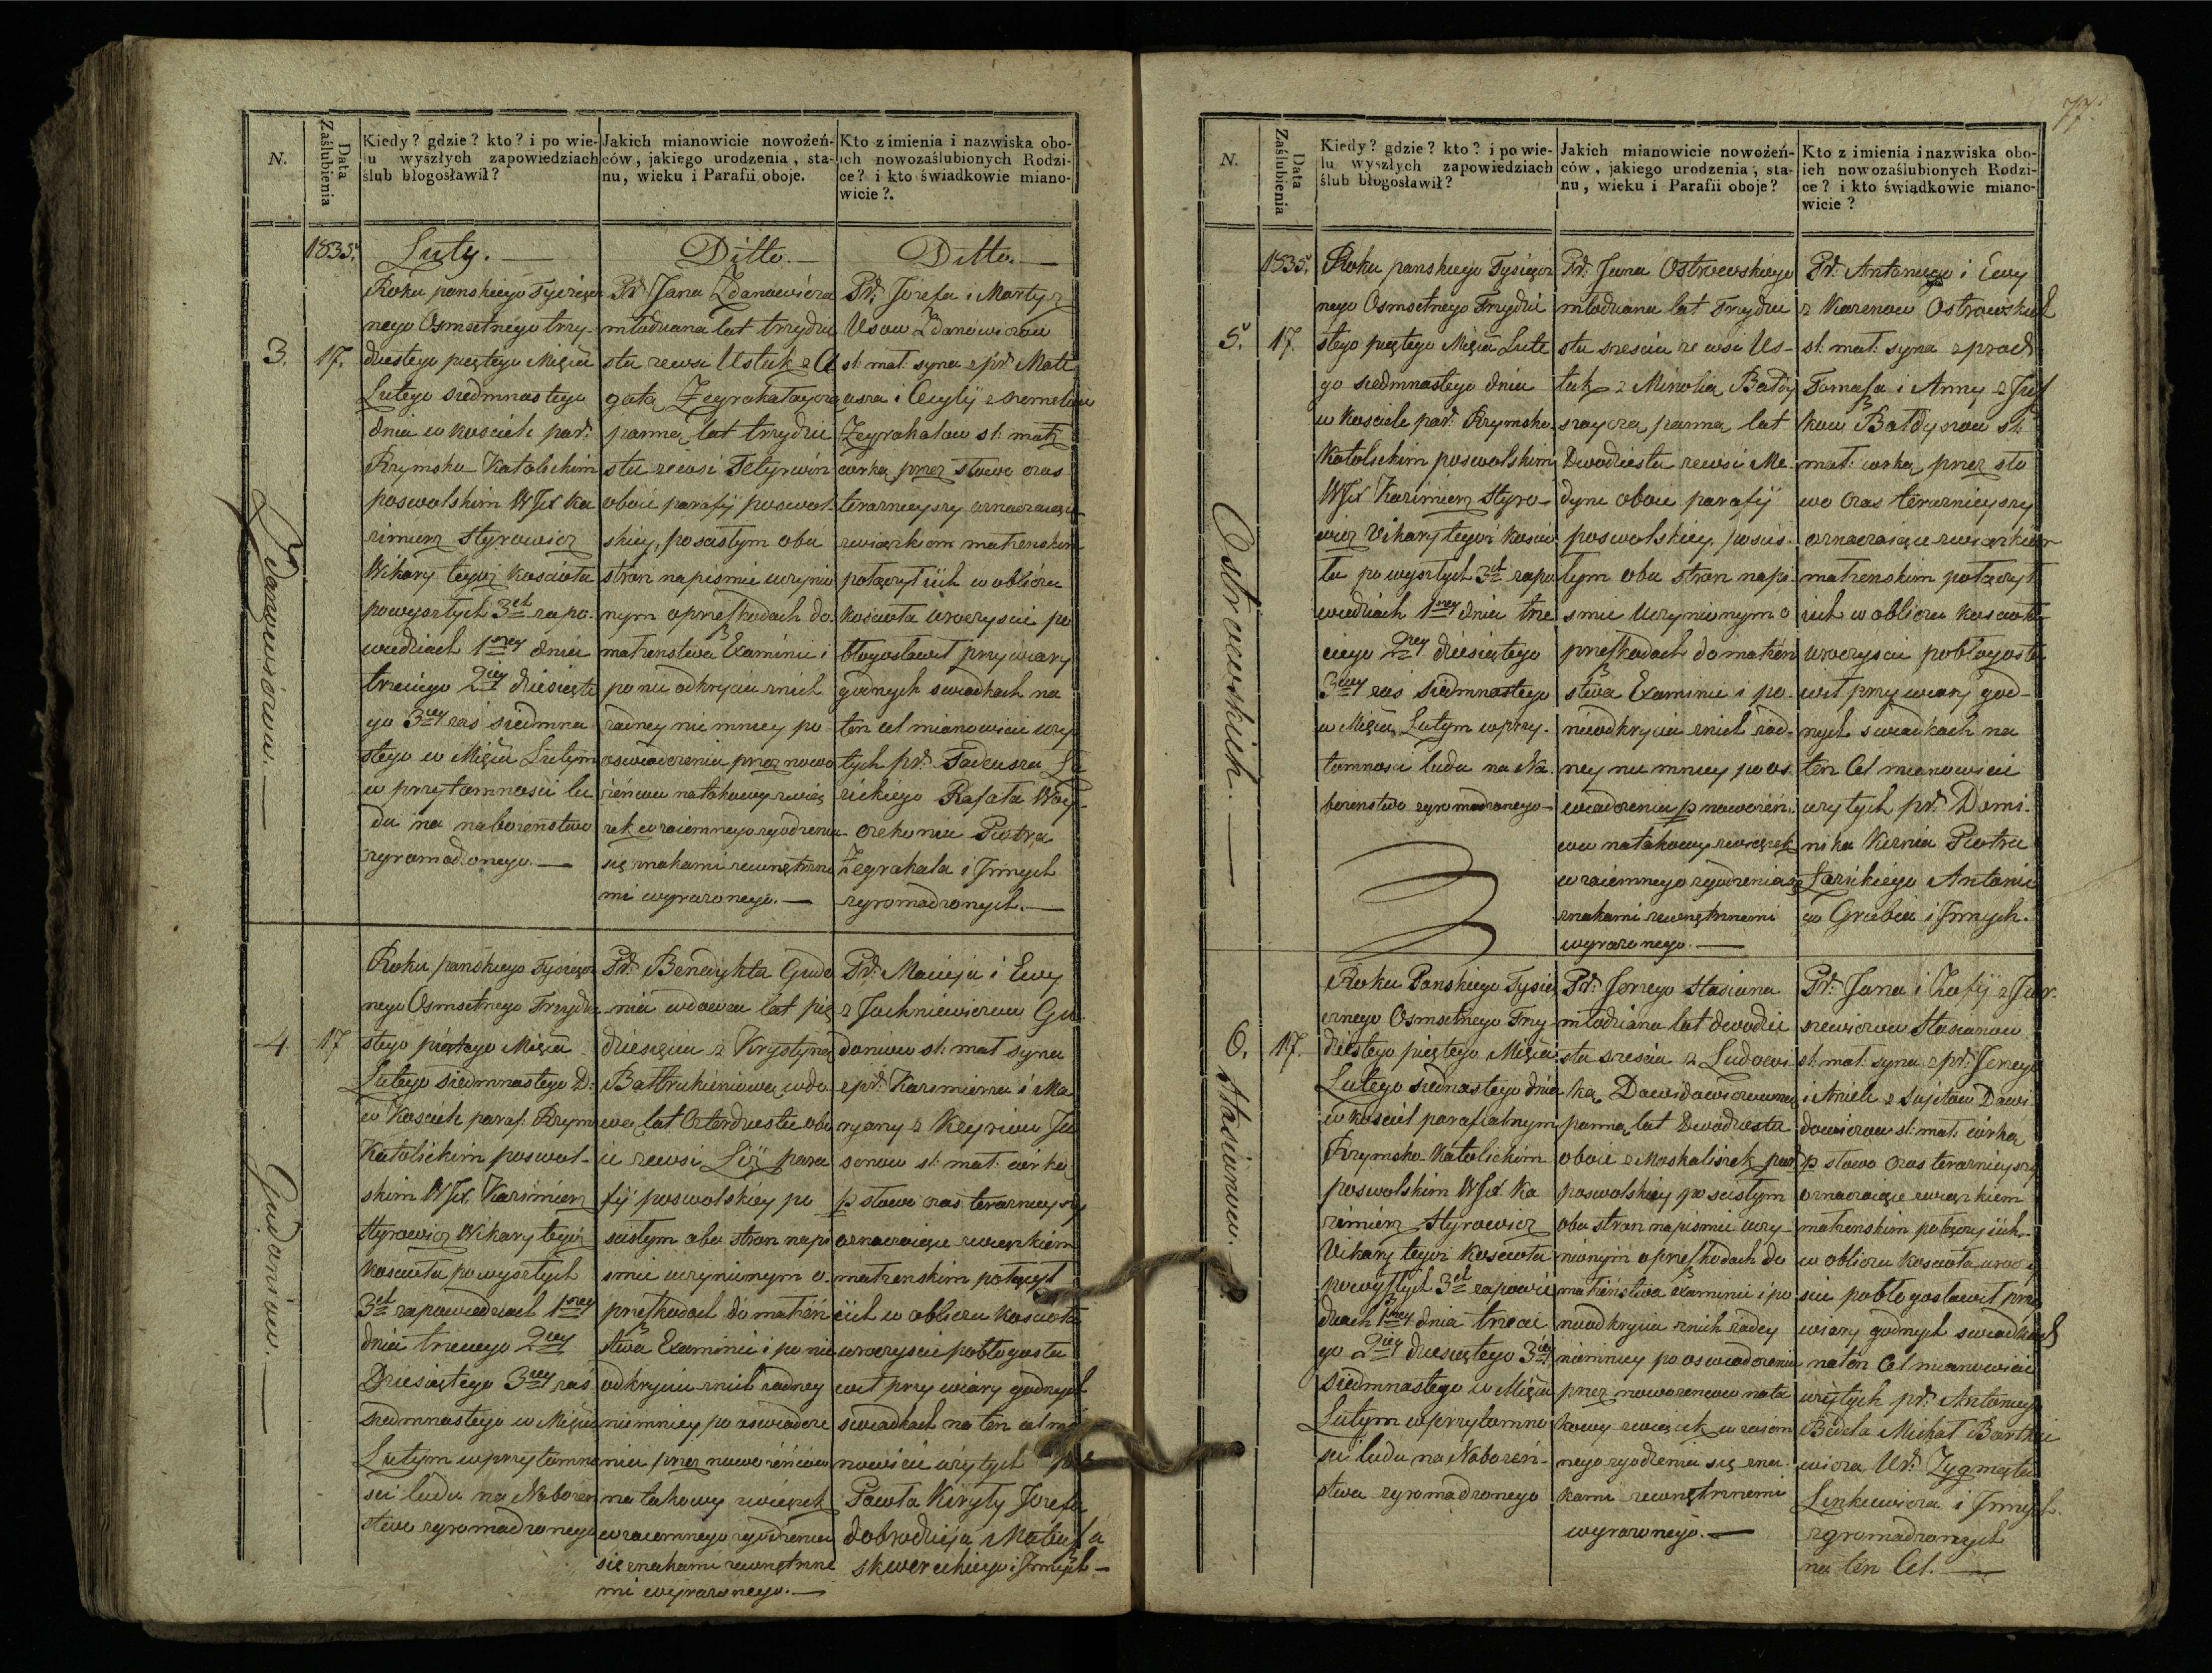 N.
Data Zaślubienia
Kiedy? gdzie? kto? i po wie-
lu wyszłych zapowiedziach
ślub błogosławił?
Jakich mianowicie nowożeń-
ców, jakiego urodzenia, sta-
nu, wieku i Parafii oboje.
Kto z imienia i nazwiska obo-
ich nowozaślubionych Rodzi-
ce? i kto świadkowie miano-
wicie?.
1835.
Luty.
Ditto.
Ditto.
3.
17.
Zdanowiczow.
Roku panskiego Tysiącz
nego Osmsetnego trzy-
dziestego piętego Mięsia
Lutego siedmnastego
dnia w kosciele par:
Rzymsko Katolickim
poswolskim WJX Ka
zimierz Styrowicz
Wikary tegoż kosciola
powyszłych 3ch zapo-
wiedziach 1szey dnia
trzeciego 2iey dziesięte
go 3ciey zaś siedmna
stego w Mięsiu Lutym
w przytomnosci lu
du na naborenstwo
zgromadzonego.
Pr: Jana Zdanowicza
młodziana lat trzydzie
stu zewsi Ustuk z A
gatą Zegrakałayczą
panną lat trzydzie
stu zewsi Tetyrwin
oboie parafij poswol-
skiey, poscisłym obu
stron napismie uczynio
nym oprzeszkodach do
matrenstwa Examinie i
ponie odkryciu znich
zadney nie mniey po
oswiadczeniu przez nowo
żeńcow natakowy zwięz
rek wzaiemnego zgodzenia
się znakami zewnętrzne
mi wyrazonego.
Pr: Jozefa i Marty z
Usow Zdanowiczow
sl: mał: syna z pr: Mate
usza i Cecylij z
Zegrakałow sl: mał:
corką przez słowo oras
terazniey szy oznaczaiące
zwiazkiem matrenskim
połączył iich w obliczu
kosciola uroczyscie po
błogosławił przy wiary
godnych swiadkach na
ten cel mianowicie wzy
tych pr: Tadeusza
zickiego Rafała Woy-
czekonia Piotra
Zegrakala i Jnnych
zgromadzonych.
4.
17
Gudoniow.
Roku panskiego Tysiącz
nego Osmsetnego Trzydzie
stego piątego Mięsia
Lutego siedmnastego D:
w Kosciele paraf: Rzym
Katolickim poswol-
skim WJX. Kazimierz
Styrowicz Wikary tegoż
kosciola powyszłych
3ch zapowiedziach 1szey
dnia trzeciego 2iey
Dziesiątego 3ciey zaś
siedmnastego w Mięsiu
Lutym wprzytomno
sci ludu na Naboren
stwo zgromadzonego
Pr: Benedykta Gudo
nia wdowca lat pię
dziesięciu z Krystyną
Bałtrukieniową wdo
wą lat Czterdziestu obo
ie zewsi para
fij poswolskiey po
scisłym obu stron napi
smie uczynionym o
przeszkodach do matreń
stwa Examinie i po nie
odkryciu znich zadney
niemniey po oswiadcze
niu przez nowożeńcow
na takowy zwięzek
wzaiemnego zgodzenia
się znakami zewnętrzne
mi wyrazonego.
Pr: Macieja i Ewy
z Juchniewiczow Gu
doniow sl: mał syna
z pr: Kazimierza i Ma
ryany z Ju
sonow sl: mał: corką
p słowo oras terazniey szy
oznaczaiące zwiazkiem
matrenskim połączył
iich w obliczu kosciola
uroczyscie pobłogosła
wił przy wiary godnych
swiadkach na ten cel mia
nowicie wzytych pr:
Pawła Kiryły Jozefa
dobrodzieja Mateusza
skwereckiego i Jnnych
77.
N.
Data Zaślubienia
Kiedy? gdzie? kto? i po wie-
lu wyszłych zapowiedziach
ślub błogosławił?
Jakich mianowicie nowożeń-
ców, jakiego urodzenia, sta-
nu, wieku i Parafii oboje?
Kto z imienia i nazwiska obo-
ich nowozaślubionych Rodzi-
ce? i kto świadkowie miano-
wicie?
1835.
5.
17.
Ostrowskich.
Roku panskiego Tysiącz
nego Osmsetnego Trzydzie
stego piętego Mięsia Lute
go siedmnastego dnia
w kosciele par: Rzymsko
Katolickim poswolskim
WJX Kazimierz Styro-
wicz Vikary tegoż koscio
ła powyszłych 3ch zapo
wiedziach 1szey dnia trze
ciego 2iey dziesiątego
3ciey zaś siedmnastego
w Mięsiu Lutym w przy-
tomnosci ludu na Na-
borenstwo zgromadzonego
Pr: Jana Ostrowskiego
młodziana lat Trzydzie
stu szesciu ze wsi Us-
tuk z Minolią Bałdy
szayczą, panną lat
Dwodziestu zewsi Me-
dyni oboie parafij
poswolskiey, poscis-
łym obu stron napi-
smie Uczynionym o
przeszkodach do matreń
stwa Examinie i po-
nieodkryciu znich zad-
ney nie mniey po os-
wiadczeniu p nowożeń
cow natakowy zwięzek
wzaiemnego zgodzenia się
znakami zewnętrznemi
wyrazonego.
Pr: Antoniego i Ewy
z Karenow Ostrowskich
sl: mał: syna z prod
Tomasza i Anny z Jusz
kow Bałdyszow sl:
mał: corką przez sło
wo oras terazniey szy
oznaczaiące zwiazkiem
matrenskim połączył
iich w obliczu kosciola
uroczyscie pobłogosła
wił przy wiary god-
nych swiadkach na
ten Cel mianowicie
wzytych pr: Domi-
nika Kiernia Piotra
Łazickiego Antonie
go Grubia i Jnnych.
6.
17.
Stasianow.
Roku Panskiego Tysią
cznego Osmsetnego Trzy
dziestego piętego Mięsia
Lutego siednastego dnia
w kosciel parafialnym
Rzymsko-Katolickim
poswolskim WJX Ka
zimierz Styrowicz
Vikary tegoż Kosciola
powyszłych 3ch zapowie
dziach 1szey dnia trzecie
go 2iey dziesiętego 3ciey
siedmnastego w Mięsiu
Lutym wprzytomno
sci ludu na Naboreń-
stwa zgromadzonego
Pr: Jerzego Stasiana
młodziana lat dwodzie
stu szesciu z Ludowi-
ką Dawidowiczowną
panną lat Dwódziestu
oboie z Moskaliszek par
poswolskiey po scisłym
obu stron napismie uczy-
nionym oprzeszkodach do
matreństwa examinie i po
nieodkryciu znich zadey
niemniey po oswiadczeniu
przez nowozencow nata
kowy zwięzek w zaiem
nego zgodzenia się zna-
kami zewnętrznemi
wyrazonego.
Pr: Jana i Zofij z Jur-
szewiczow Stasianow
sl: mał: syna z pr: Jerzego
i Anieli z Dawi-
dowiczow sl: mał: corką
p słowo oras terazniey szy
oznaczaiące zwiazkiem
matrenskim połączył iich
w obliczu kosciola uroczy
scie pobłogosławił przy
wiary godnych swiadkach
na ten Cel mianowicie
wzętych pr: Antoniego
Bidela Michał Bartkie
wicza Ur: Zygmęta
Linkiewicza i Jnnych
zgromadzonych
na ten Cel.